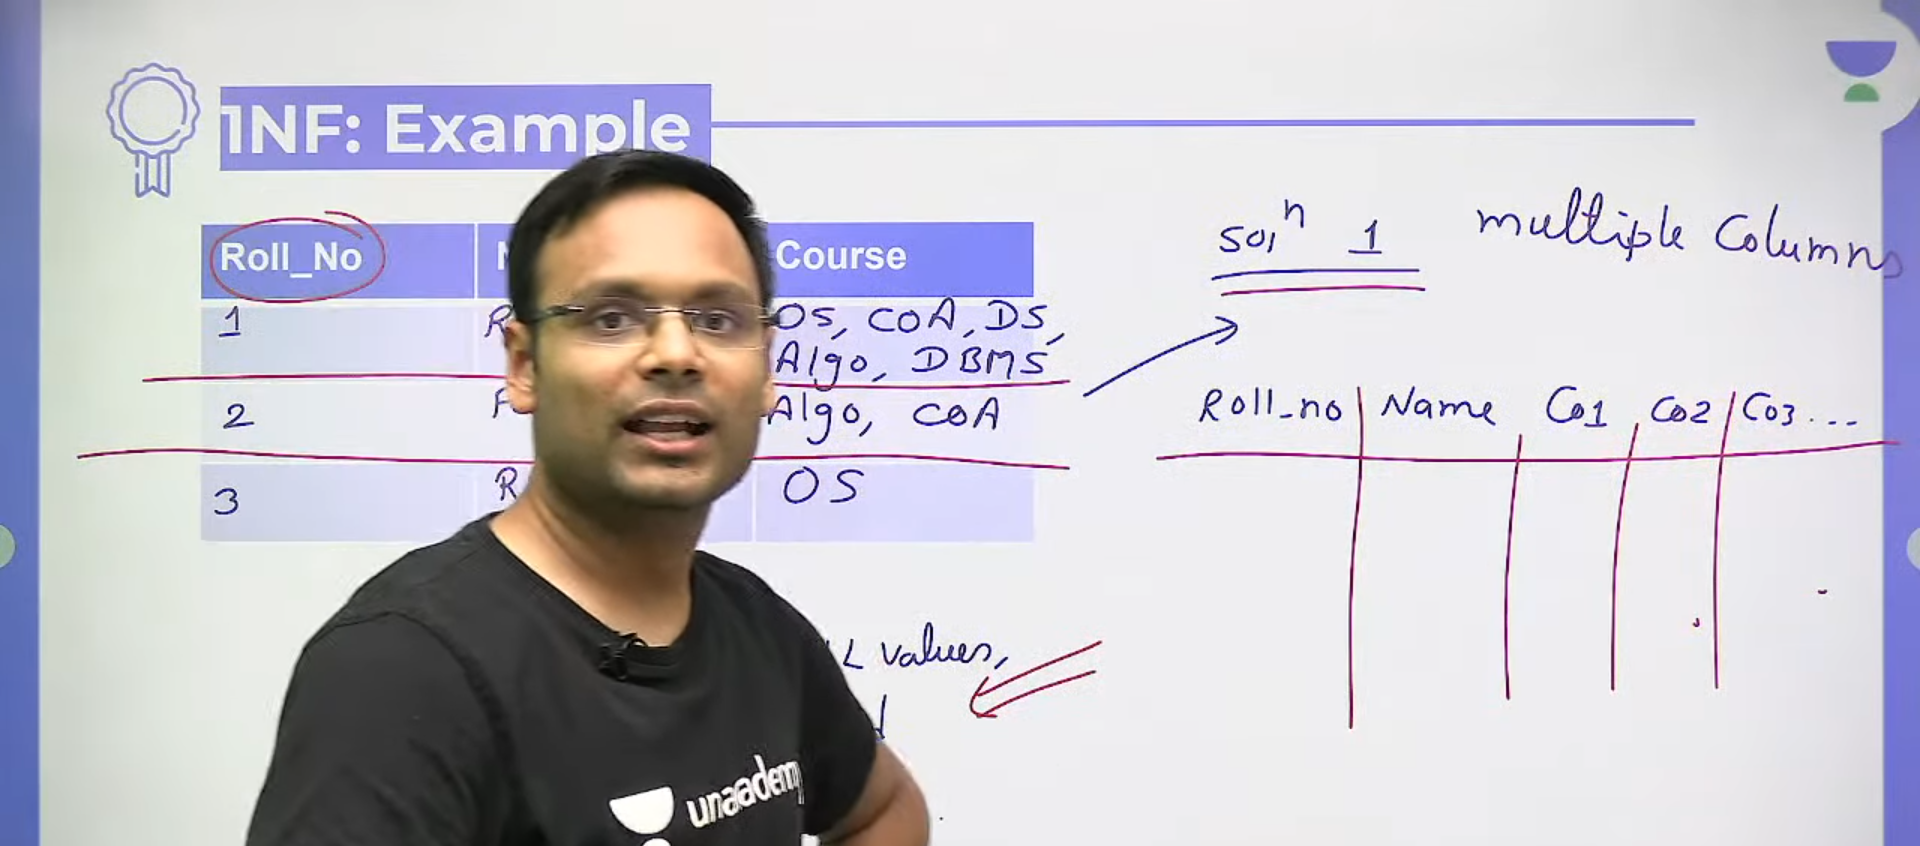 1NF: Example
Roll_No Course
1 OS, COA, DS,
Algo, DBMS
2 Algo, COA
3 OS
values,
Solⁿ 1 multiple Columns
Roll_no Name Co1 Co2 Co3...
unacademy